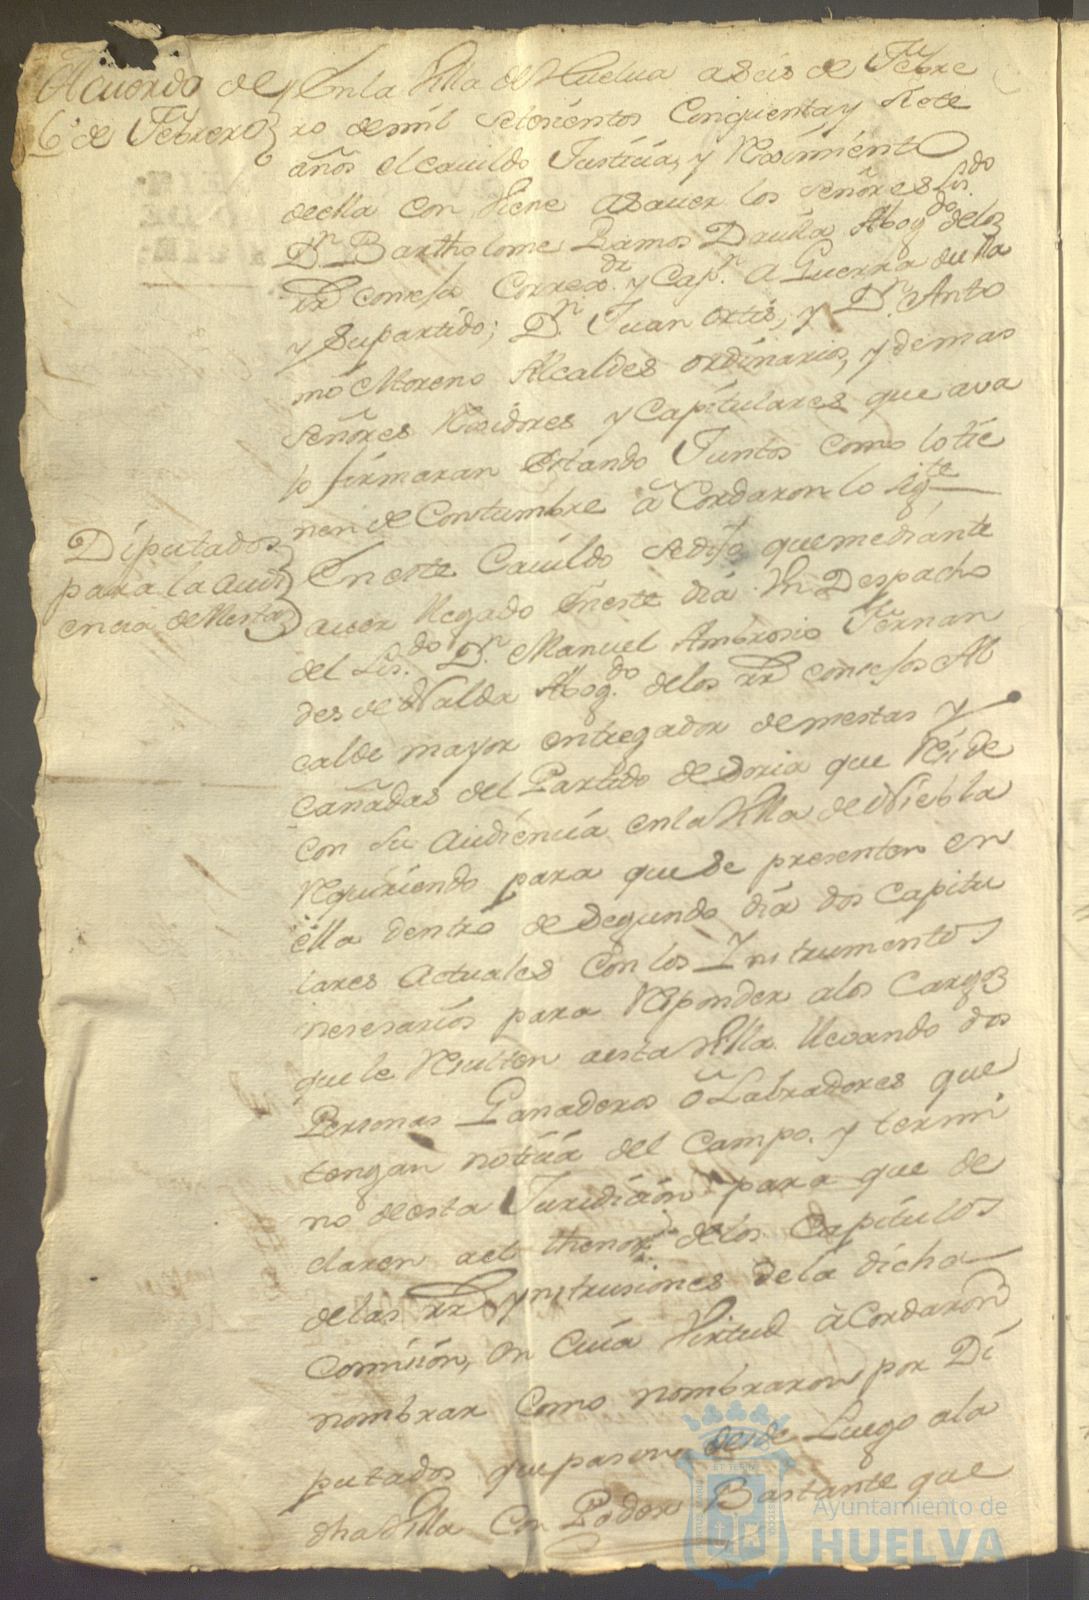 Acuordo de
6 de Febrero
En la Villa de Huelua a Seis de Febre
ro de mil Setesientos Cinquenta y Siete
años el cauildo Justicia, y Reximiento
de ella con Viene asauer los Señores Lis.do
Dn. Bartholome Ramos Dauila Abog.do de los
RR consejs Corregor. y Cap.n a Guerra de ella
y Su partido; Dn. Juan Ortis, y Dn. Anto
nio Moreno Alcaldes ordinarios, y demas
Señores Rexidores y Capitulares que aua
lo firmaran Estando Juntos como lo tie
nen de Contumbre acordaron lo sigte
Diputados
para la audi
encia de Mesta
En este Cauildo Se dijo que mediante
auer llegado en este dia Vn Despacho
del Lis.do Dn. Manuel Ambrosio Fernan
des de Nalda Abog.do de los RR consejos Al
calde mayor entregador de mestas y
cañadas del Partido de Soria que Reside
con su Audiencia en la Villa de Niebla
Requiriendo para que Se presenten en
ella dentro de Segundo dia dos Capitu
lares actuales con los Instrumentos
nesesarios para Responder a los Cargos
que le Resulten a esta Villa llevando dos
Personas Ganaderos o Labradores que
tengan notisia del Campo y termi
no de esta Juridision para que de
claren a el thenor de los Capitulos
de las RR ynstrusiones de la dicha
Comision, en Cuia Virtud acordaron
nombrar Como nombraron por Di
putados que pasen desde Luego a la
dha Villa Con Poder Bastante que
Ayuntamiento de
HUELVA